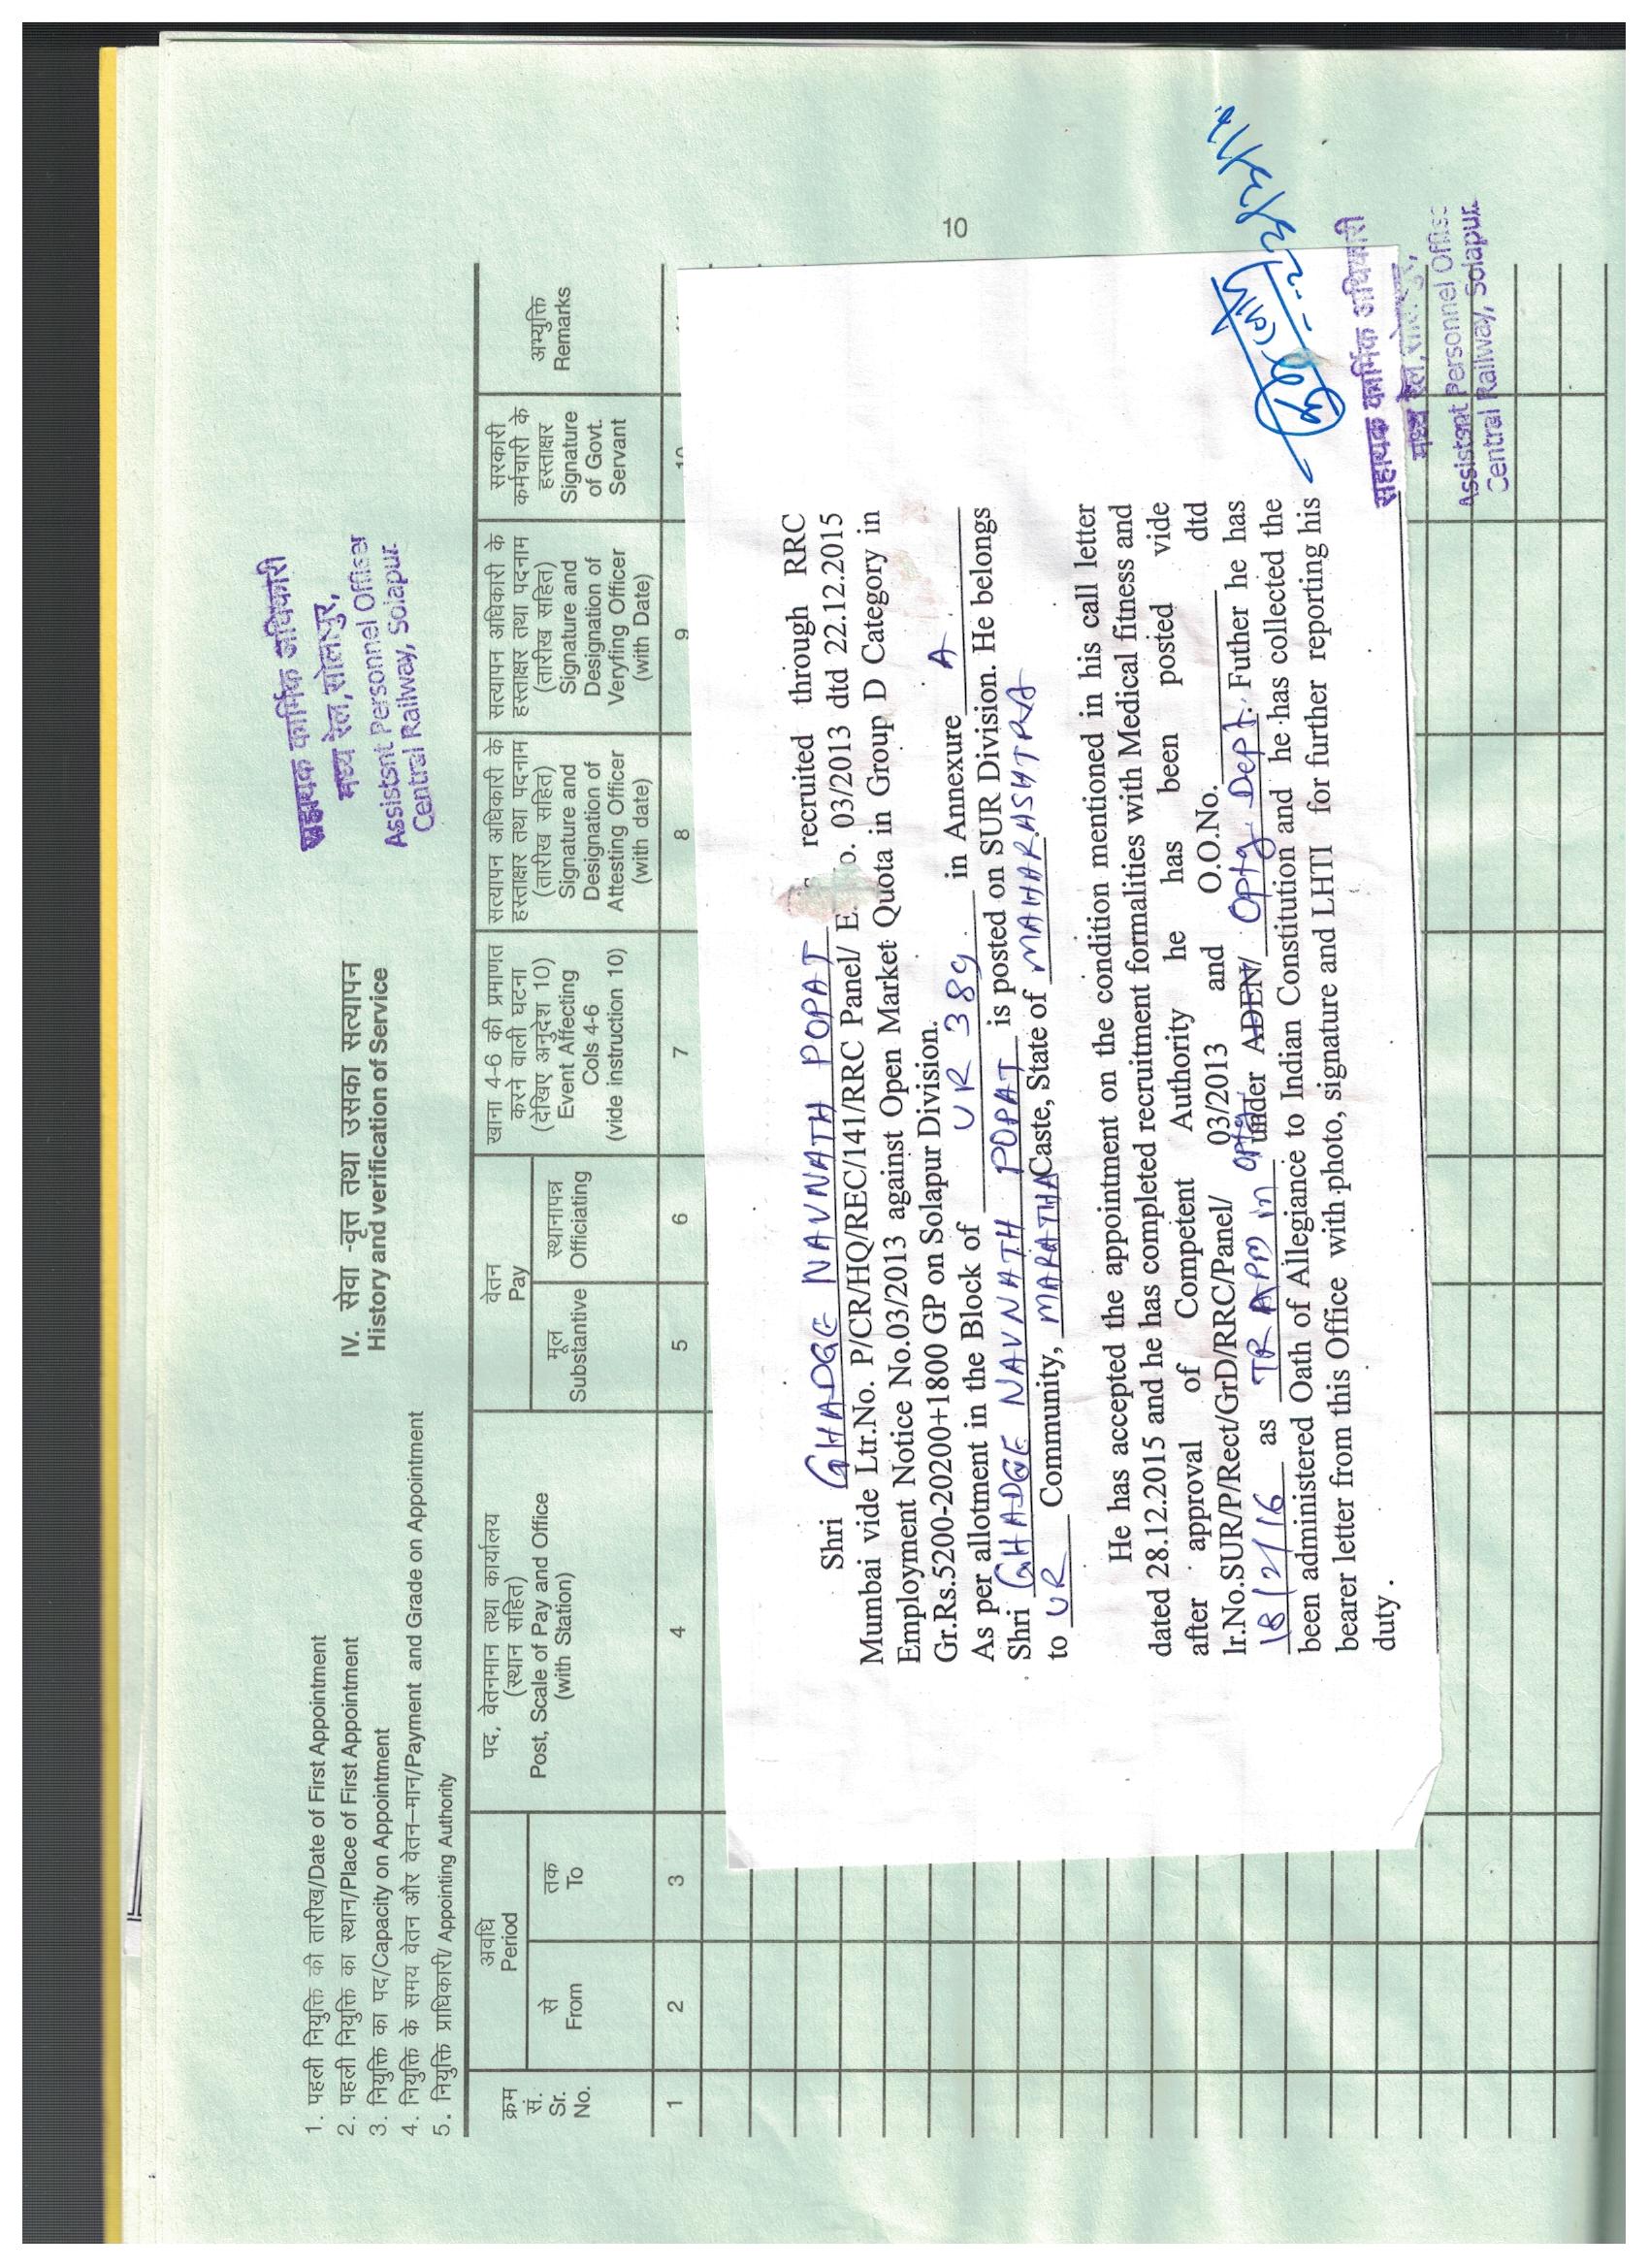 सहायक कार्मिक अधिकारी
मध्य रेल, सोलापुर,
Assistsnt Personnel Officer
Central Railway, Solapur.
IV. सेवा -वृत्त तथा उसका सत्यापन
History and verification of Service
1. पहली नियुक्ति की तारीख/Date of First Appointment
2. पहली नियुक्ति का स्थान/Place of First Appointment
3. नियुक्ति का पद/Capacity on Appointment
4. नियुक्ति के समय वेतन और वेतन–मान/Payment and Grade on Appointment
5. नियुक्ति प्राधिकारी/ Appointing Authority
क्रम सं. Sr. No.
अवधि Period
से From
तक To
पद, वेतनमान तथा कार्यालय (स्थान सहित) Post, Scale of Pay and Office (with Station)
वेतन Pay
मूल Substantive
स्थानापन्न Officiating
खाना 4-6 की प्रमाणत करने वाली घटना (देखिए अनुदेश 10) Event Affecting Cols 4-6 (vide instruction 10)
सत्यापन अधिकारी के हस्ताक्षर तथा पदनाम (तारीख सहित) Signature and Designation of Attesting Officer (with date)
सत्यापन अधिकारी के हस्ताक्षर तथा पदनाम (तारीख सहित) Signature and Designation of Veryfing Officer (with Date)
सरकारी कर्मचारी के हस्ताक्षर Signature of Govt. Servant
अभ्युक्ति Remarks
1 2 3 4 5 6 7 8 9 10
Shri GHADGE NAVNATH POPAT recruited through RRC
Mumbai vide Ltr.No. P/CR/HQ/REC/141/RRC Panel/ E. 03/2013 dtd 22.12.2015
Employment Notice No.03/2013 against Open Market Quota in Group D Category in
Gr.Rs.5200-20200+1800 GP on Solapur Division.
As per allotment in the Block of UR 389 in Annexure A
Shri GHADGE NAVNATH POPAT is posted on SUR Division. He belongs
to UR Community, MARATHA Caste, State of MAHARASHTRA
He has accepted the appointment on the condition mentioned in his call letter
dated 28.12.2015 and he has completed recruitment formalities with Medical fitness and
after approval of Competent Authority he has been posted vide
lr.No.SUR/P/Rect/GrD/RRC/Panel/ 03/2013 and O.O.No. dtd
18/2/16 as TRAPM in optg under ADEN/ Optg Dept. Futher he has
been administered Oath of Allegiance to Indian Constitution and he has collected the
bearer letter from this Office with photo, signature and LHTI for further reporting his
duty.
सहायक कार्मिक अधिकारी
मध्य रेल, सोलापुर,
Assistsnt Personnel Office
Central Railway, Solapur.
10